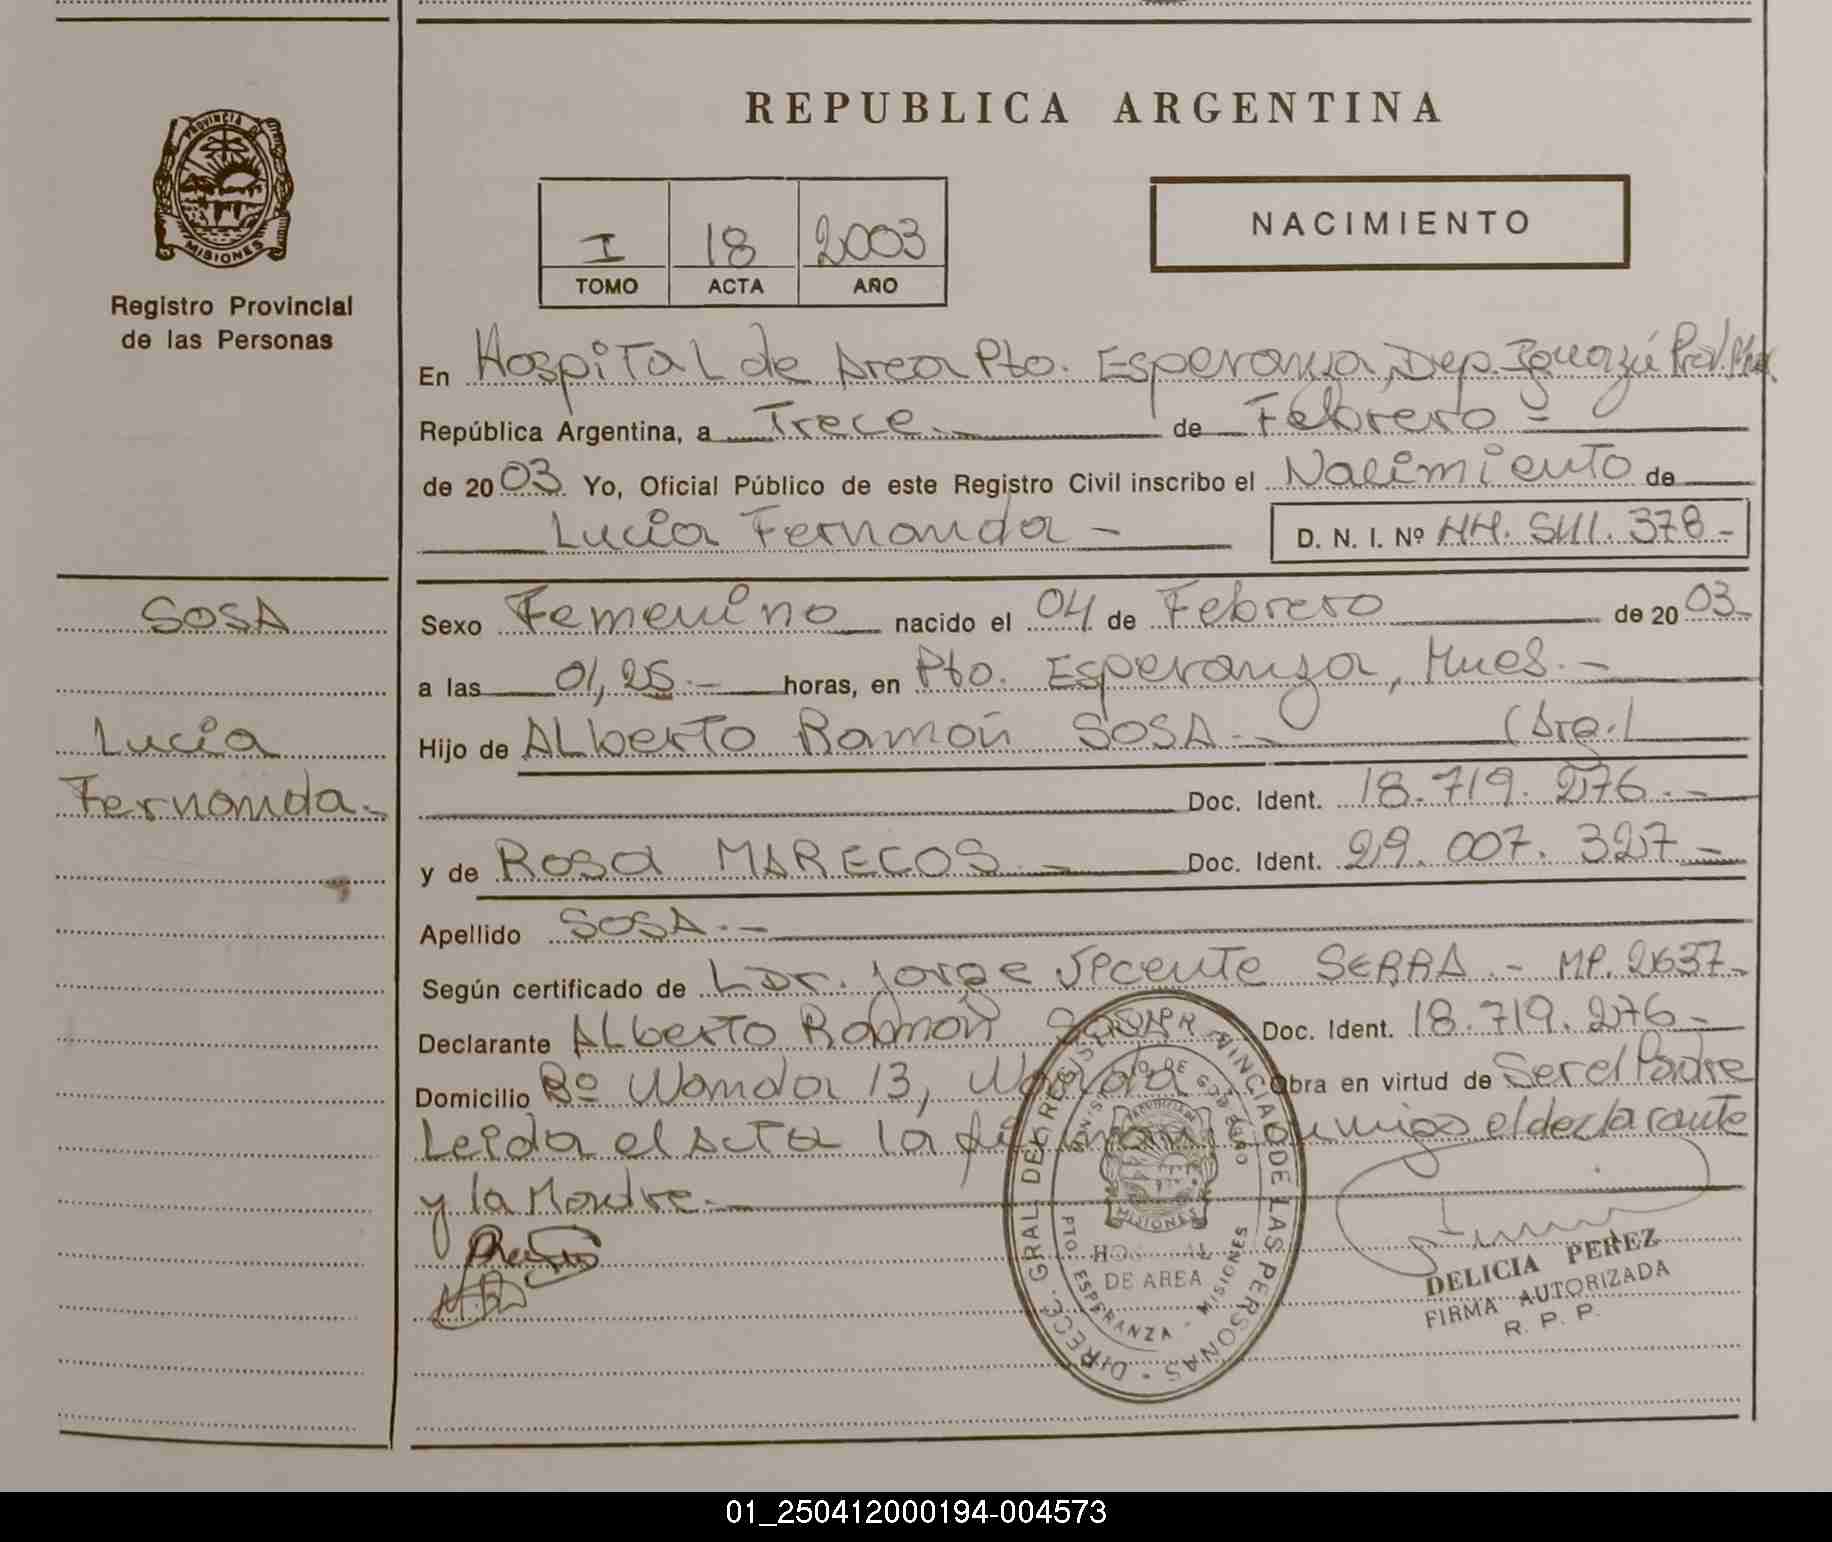 REPUBLICA ARGENTINA
PROVINCIA DE
MISIONES
Registro Provincial
de las Personas
I 18 2003
TOMO ACTA AÑO
NACIMIENTO
En Hospital de Area Pto. Esperanza, Dep. Iguazú Prov. Mnes.
República Argentina, a Trece.- de Febrero -
de 2003 Yo, Oficial Público de este Registro Civil inscribo el Nacimiento de
Lucia Fernanda -
D. N. I. Nº 44. 511. 378 -
SOSA
Lucia
Fernanda.-
Sexo Femenino nacido el 04 de Febrero de 2003.-
a las 01,25.- horas, en Pto. Esperanza, Mnes.-
Hijo de Alberto Ramón SOSA.- (Arg.)
Doc. Ident. 18.719.276.-
y de Rosa MARECOS.- Doc. Ident. 29.007.327-
Apellido SOSA.-
Según certificado de Dr. Jorge Vicente SERRA.- MP. 2637-
Declarante Alberto Ramón SOSA Doc. Ident. 18.719.276-
Domicilio Bº Wanda 13, Wanda Obra en virtud de Ser el Padre
Leida el acta la firman conmigo el declarante
y la Madre.-
DIREC. GRAL. DEL REGISTRO PROVINCIAL DE LAS PERSONAS
MINISTERIO DE GOBIERNO
MISIONES
HOSPITAL
DE AREA
PTO ESPERANZA - MISIONES
DELICIA PEREZ
FIRMA AUTORIZADA
R. P. P.
01_250412000194-004573